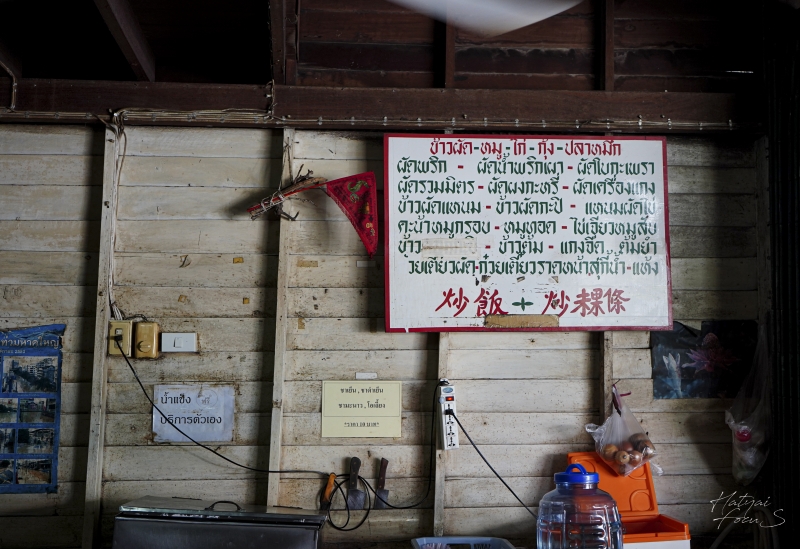 ข้าวผัด-หมู-ไก่-กุ้ง-ปลาหมึก
ผัดพริก - ผัดน้ำพริกเผา - ผัดใบกะเพรา
ผัดรวมมิตร - ผัดผงกะหรี่ - ผัดเครื่องแกง
ข้าวผัดแหนม - ข้าวผัดกะปิ - แหนมผัดไข่
คะน้าหมูกรอบ - หมูทอด - ไข่เจียวหมูสับ
ข้าว - ข้าวต้ม - แกงจืด ต้มยำ
ก๋วยเตี๋ยวผัด-ก๋วยเตี๋ยวราดหน้าสุกี้น้ำ-แห้ง
炒飯 + 炒粿條
น้ำแข็ง ฟรี
บริการตัวเอง
ชาเย็น , ชาดำเย็น
ชามะนาว , โอเลี้ยง
Hatyai
Focus